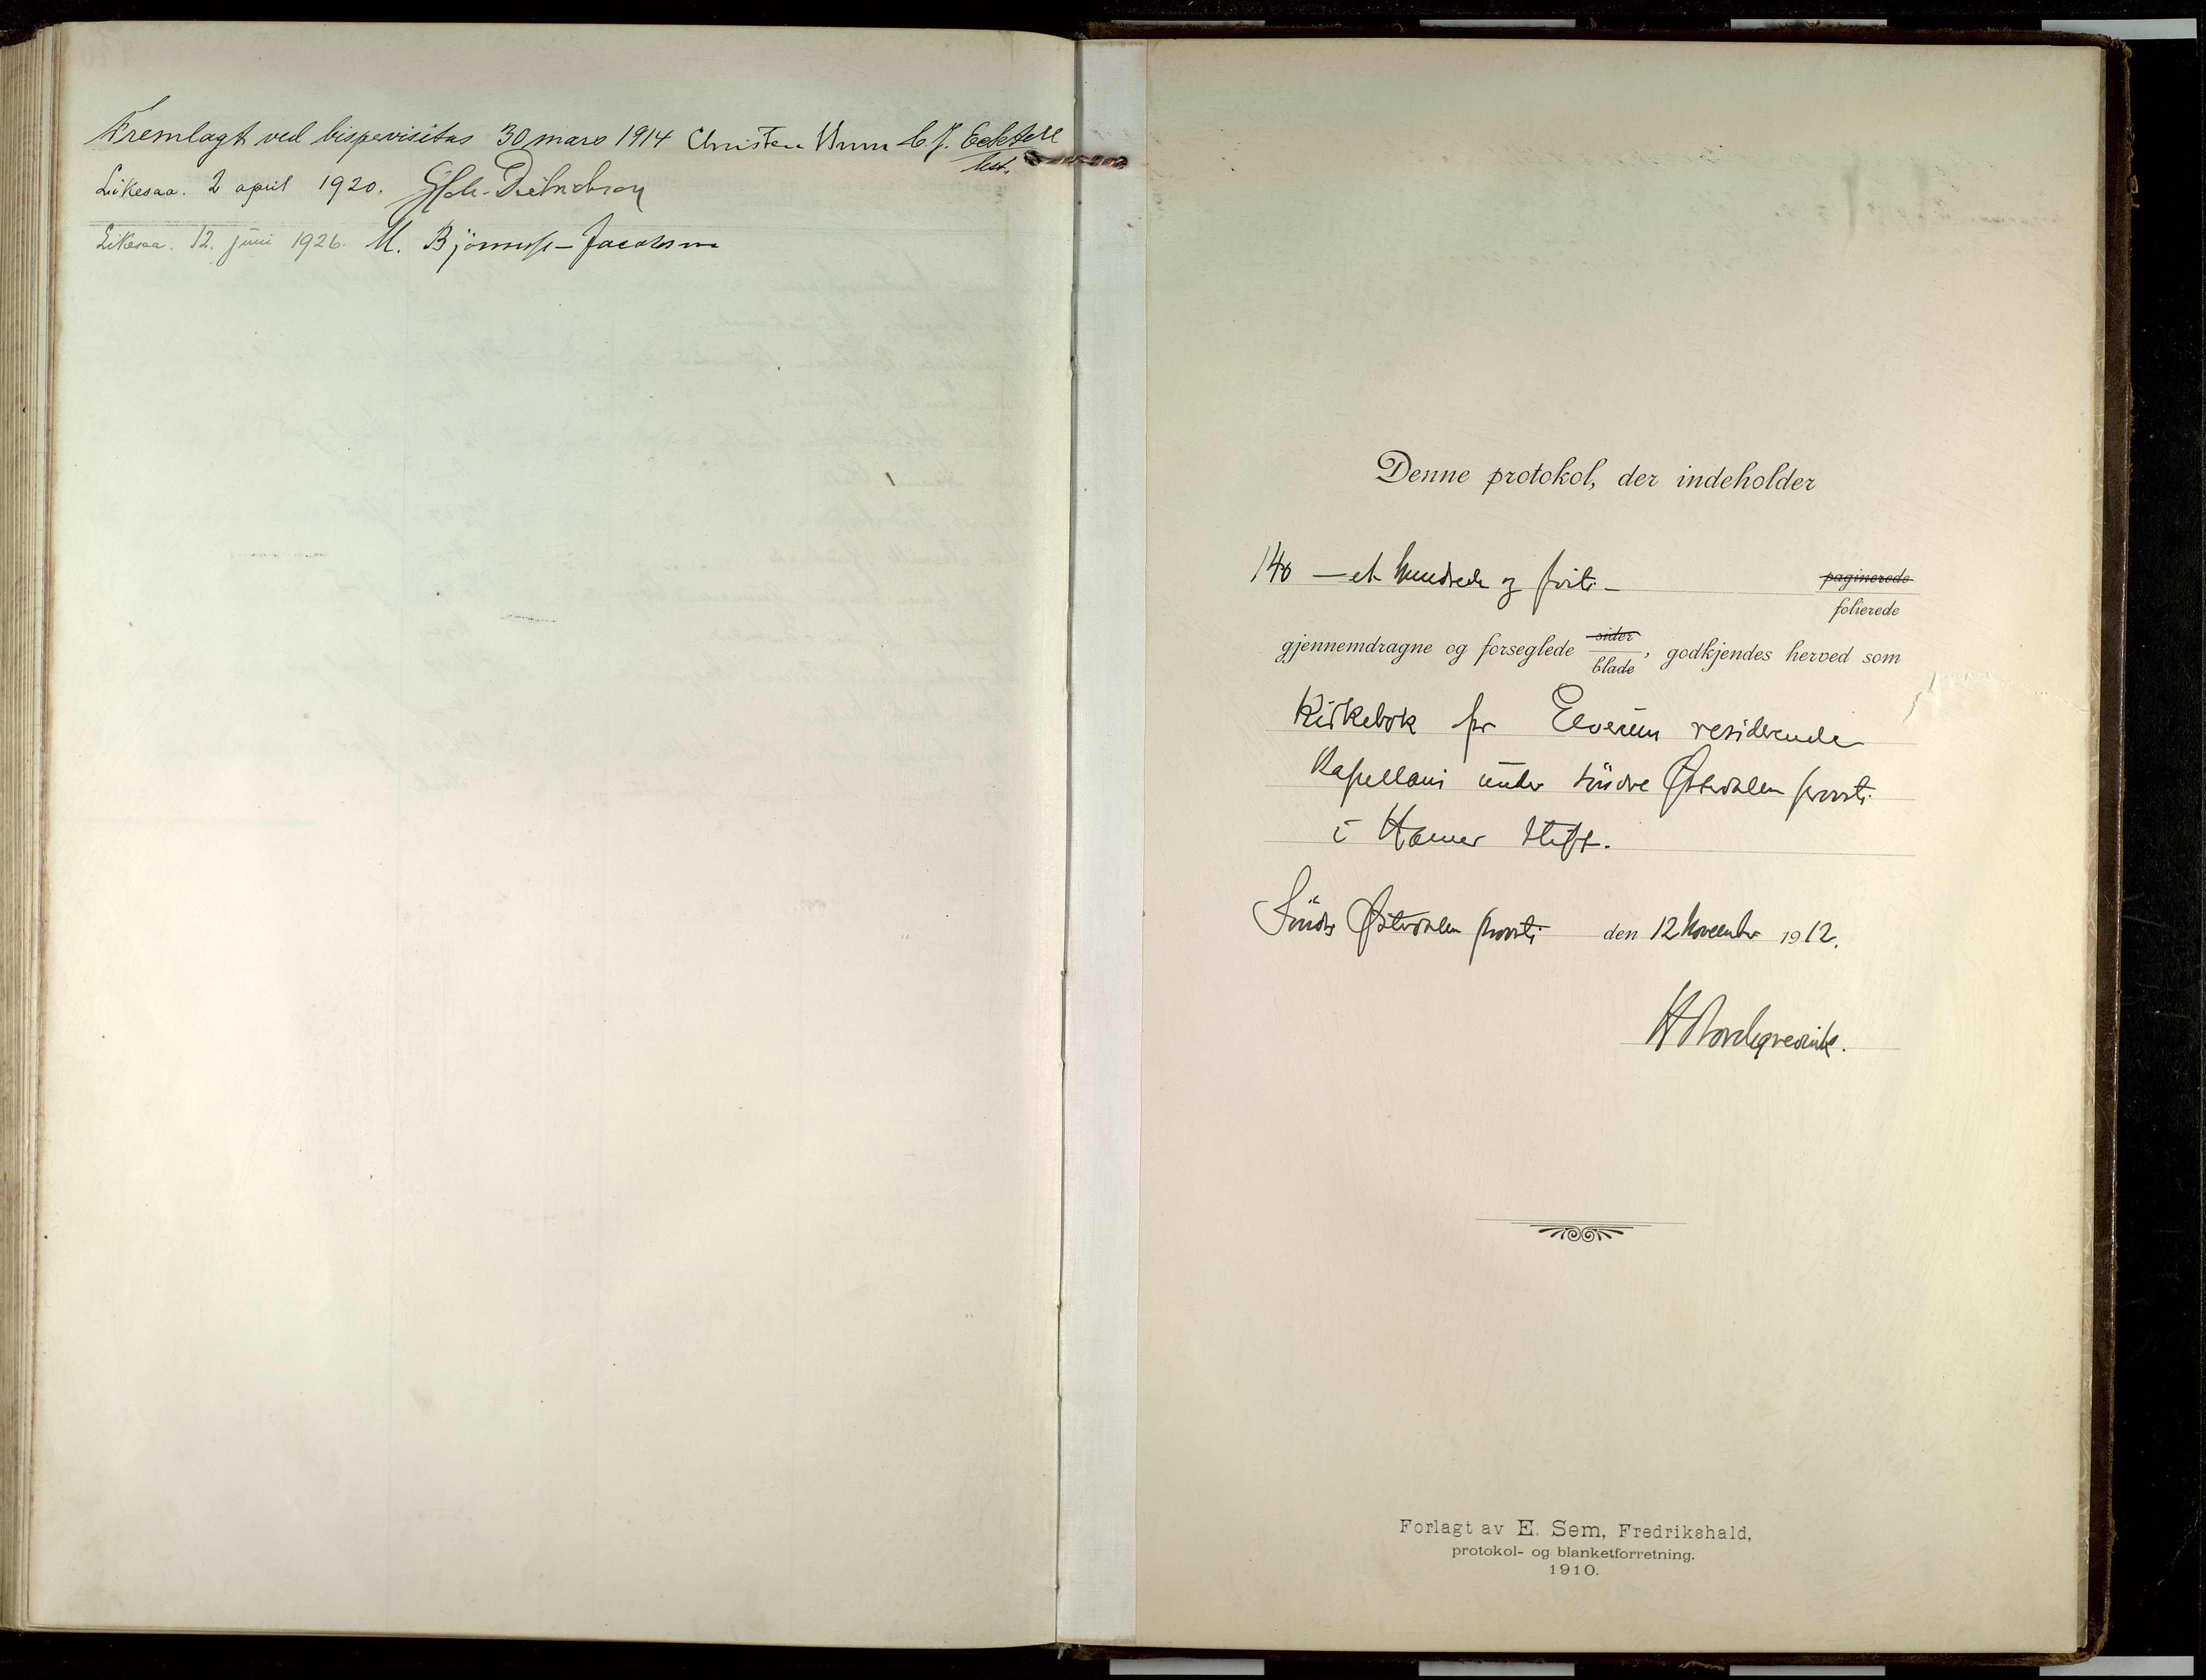 Fremlagt ved bispevisitas 30 mars 1914 Christen Brun C. J.
Likesaa. 2 april 1920.
Likesaa. 12. juni 1926. M. Bjønness-Jacobsen
Denne protokol, der indeholder
140 — et hundrede og førti — paginerede
folierede
gjennemdragne og forseglede sider
blade, godkjendes herved som
Kirkebok for Elverum residerende
Kapellani under Søndre Østerdalen provsti
i Hamar Stift.
Søndre Østerdalen provsti den 12 November 1912.
Forlagt av E. Sem, Fredrikshald,
protokol- og blanketforretning.
1910.